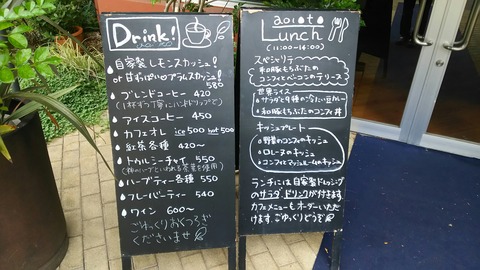 Drink!
自家製レモンスカッシュ!
or 甘ずっぱ〜いプラムスカッシュ!
580
ブレンドコーヒー 420
(1杯ずつ丁寧にハンドドリップで)
アイスコーヒー 450
カフェオレ ice500 hot500
紅茶各種 420〜
トゥルシーチャイ 550
ハーブティー各種 550
フレーバーティー 540
ワイン 600〜
ごゆっくりおくつろぎ
くださいませ
Lunch
(11:00-16:00)
スペシャリテ
和豚もちぶたの
コンフィとベーコンのテリーヌ
世界ライス
サラダと9種の冷たい豆カレー
和豚もちぶたのコンフィ丼
キッシュプレート
野菜のコンフィのキッシュ
ロレーヌのキッシュ
コンフィとマッシュルームのキッシュ
ランチには自家製ドレッシング
のサラダ、ドリンクが付きます。
カフェメニューもオーダーいただ
けます。ごゆっくりどうぞ